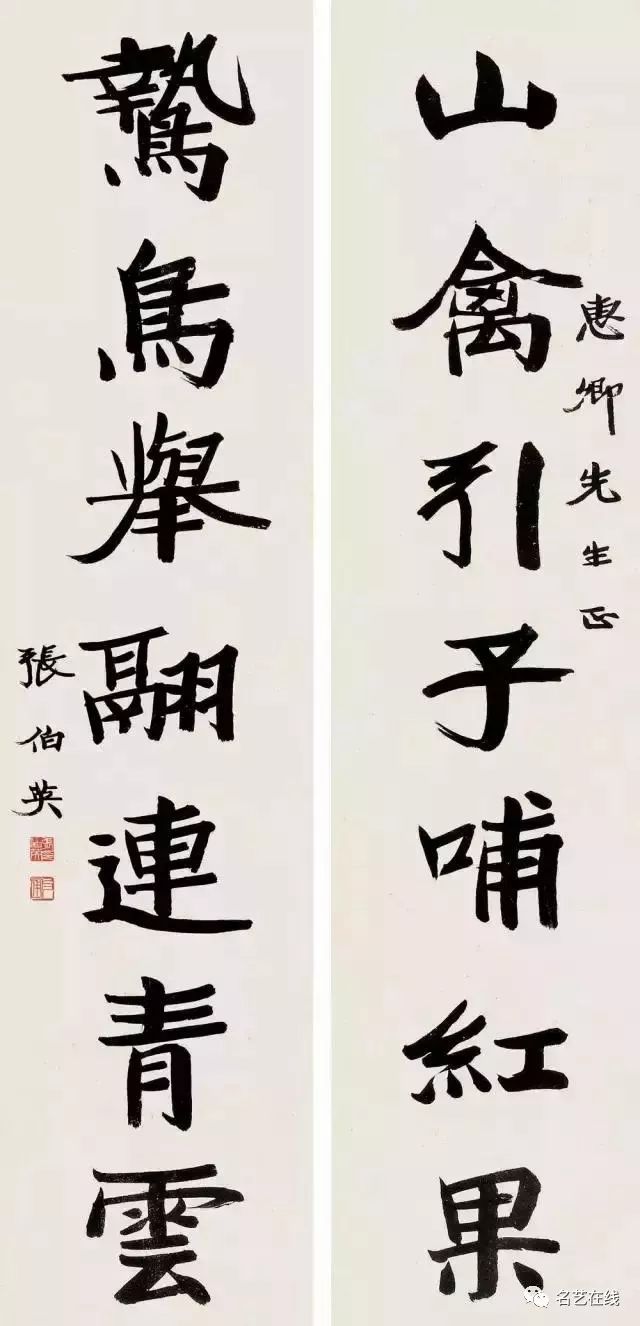 山禽引子哺紅果
惠卿先生正
鷙鳥舉翮連青雲
張伯英
名艺在线